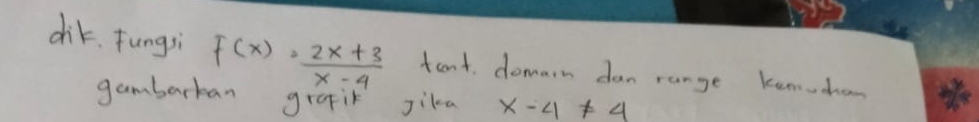 dik. Fungsi f(x) = \frac{2x+3}{x-4} tent. domain dan range kemudian
gambarkan grafik jika x-4 ≠ 4